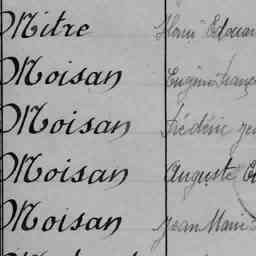 Mitre Henri Edouar
Moisan Eugène Franç
Moisan Frédéric Je
Moisan Auguste E
Moisan Jean Marie